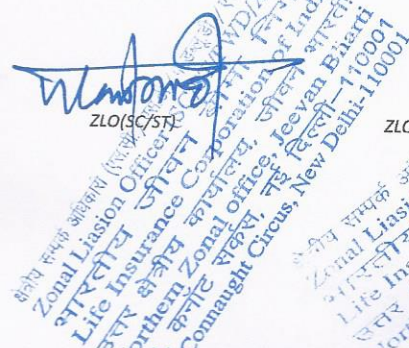 ZLO(SC/ST)
ZLO
क्षेत्रीय सम्पर्क अधिकारी
Zonal Liasion Officer
भारतीय जीवन बीमा निगम
Life Insurance Corporation of Indi
उत्तर क्षेत्रीय कार्यालय, जीवन भारती
orthern Zonal office, Jeevan Bharti
कनॉट सर्कस, नई दिल्ली-110001
Connaught Circus, New Delhi-110001
क्षेत्रीय सम्पर्क
Zonal Liasi
भारतीय
Life Ins
उत्तर